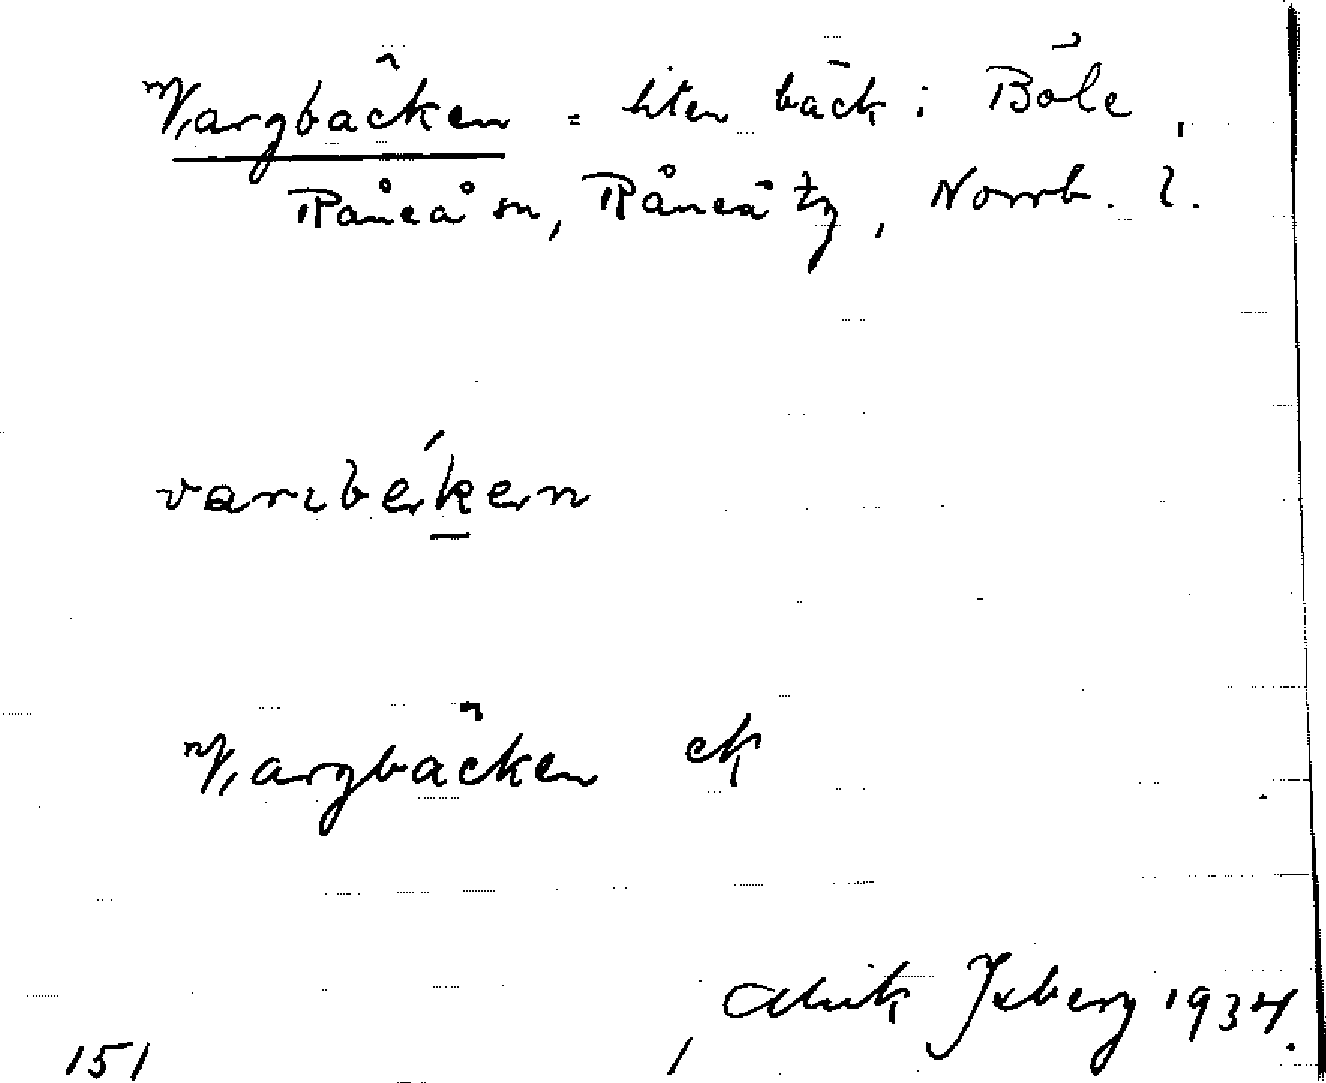 Vargbäcken = liten bäck i Böle,
Råneå sn, Råneå tg, Norrb. l.
Vargbäcken ek
Alrik Isberg 1934.
151 /